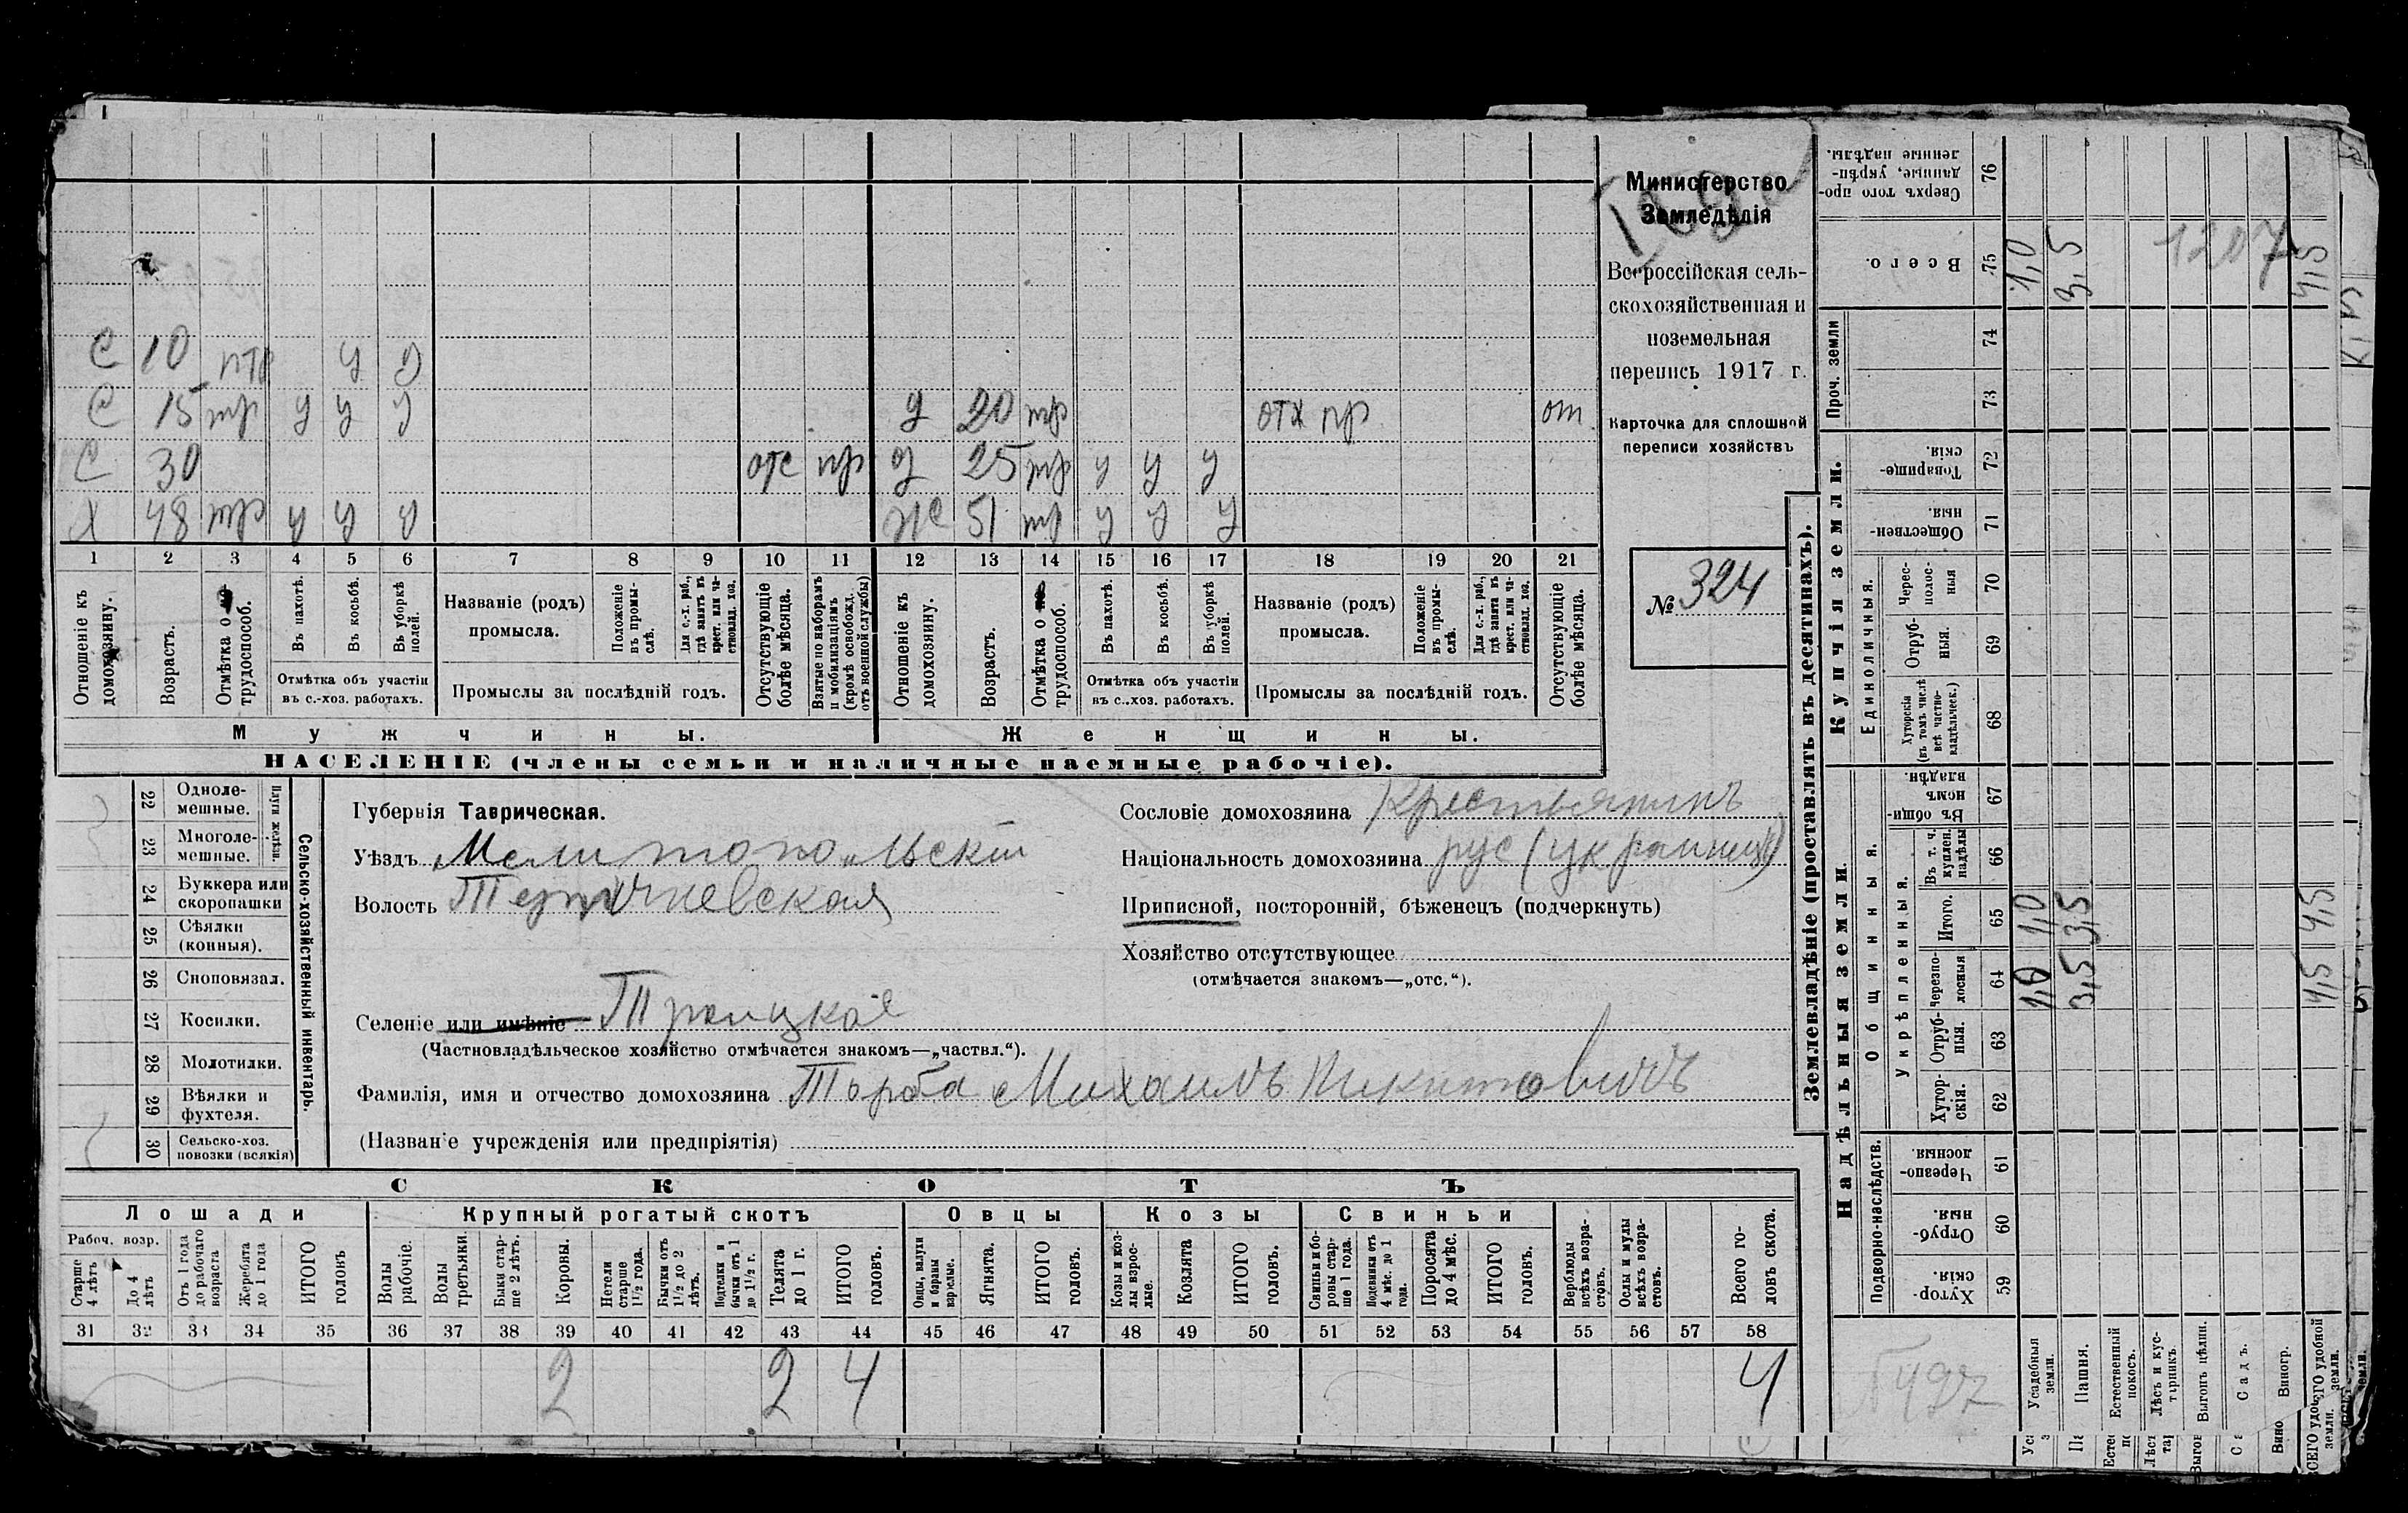 С 10 птр у у
С 15 тр у у у д 20 тр отх пр от
С 30 отс пр д 25 тр у у у
Х 48 тр у у у ж 51 тр у у у
1 2 3 4 5 6 7 8 9 10 11 12 13 14 15 16 17 18 19 20 21
Отношеніе къ домохозяину.
Возрастъ.
Отмѣтка о трудоспособ.
Въ пахотѣ.
Въ косьбѣ.
Въ уборкѣ полей.
Отмѣтка объ участіи въ с.-хоз. работахъ.
Названіе (родъ) промысла.
Положеніе въ промыслѣ.
Для с.-х. раб., гдѣ занятъ въ крест. или частновлад. хоз.
Промыслы за послѣдній годъ.
Отсутствующіе болѣе мѣсяца.
Взятые по наборамъ и мобилизаціямъ (кромѣ освобожд. отъ военной службы)
Отношеніе къ домохозяину.
Возрастъ.
Отмѣтка о трудоспособ.
Въ пахотѣ.
Въ косьбѣ.
Въ уборкѣ полей.
Отмѣтка объ участіи въ с.-хоз. работахъ.
Названіе (родъ) промысла.
Положеніе въ промыслѣ.
Для с.-х. раб., гдѣ занята въ крест. или частновлад. хоз.
Промыслы за послѣдній годъ.
Отсутствующіе болѣе мѣсяца.
Мужчины. Женщины.
НАСЕЛЕНІЕ (члены семьи и наличные наемные рабочіе).
Министерство
Земледѣлія
Всероссійская сель-
скохозяйственная и
поземельная
перепись 1917 г.
Карточка для сплошной
переписи хозяйствъ
№ 324
22 Одноле-мешные.
23 Многоле-мешные.
Плуги желѣзн.
24 Буккера или скоропашки
25 Сѣялки (конныя).
26 Сноповязал.
27 Косилки.
28 Молотилки.
29 Вѣялки и фухтеля.
30 Сельско-хоз. повозки (всякія)
Сельско-хозяйственный инвентарь.
Губернія Таврическая.
Уѣздъ Мелитопольскій
Волость
Селеніе или имѣніе Троицкое
(Частновладѣльческое хозяйство отмѣчается знакомъ—„частвл.“).
Фамилія, имя и отчество домохозяина Торба Михаилъ Никитовичъ
(Названіе учрежденія или предпріятія)
Сословіе домохозяина Крестьянинъ
Національность домохозяина рус (украинецъ)
Приписной, посторонній, бѣженецъ (подчеркнуть)
Хозяйство отсутствующее
(отмѣчается знакомъ—„отс.“).
СКОТЪ
Лошади Крупный рогатый скотъ Овцы Козы Свиньи
Рабоч. возр.
Старше 4 лѣтъ
До 4 лѣтъ
Отъ 1 года до рабочаго возраста
Жеребята до 1 года
ИТОГО головъ
Волы рабочіе.
Волы третьяки.
Быки старше 2 лѣтъ.
Коровы.
Нетели старше 1 1/2 года.
Бычки отъ 1 1/2 до 2 лѣтъ.
Подтелки и бычки отъ 1 до 1 1/2 г.
Телята до 1 г.
ИТОГО головъ.
Овцы, валухи и бараны взрослые.
Ягнята.
ИТОГО головъ.
Козы и козлы взрослые.
Козлята
ИТОГО головъ.
Свиньи и боровы старше 1 года.
Подсвинки отъ 4 мѣс. до 1 года.
Поросята до 4 мѣс.
ИТОГО головъ.
Верблюды всѣхъ возрастовъ.
Ослы и мулы всѣхъ возрастовъ.
Всего головъ скота.
31 32 33 34 35 36 37 38 39 40 41 42 43 44 45 46 47 48 49 50 51 52 53 54 55 56 57 58
2 2 4 4
Землевладѣніе (проставлять въ десятинахъ).
Купчія земли.
Надѣльныя земли.
Сверхъ того проданные, укрѣпленные надѣлы. 76
Всего. 75 1,0 3,5 1207 4,5
Проч. земли 74 73
Товарищескія. 72
Общественныя. 71
Единоличныя.
Черес-полосныя 70
Отрубныя. 69
Хуторскія (въ томъ числѣ всѣ частновладѣльческ.) 68
Общинныя.
Въ общинномъ владѣн. 67
Укрѣпленныя.
Въ т. ч. куплен. надѣлы 66
Итого. 65 1,0 3,5 4,5
Черезполосныя 64 1,0 3,5 4,5
Отрубныя. 63
Хуторскія. 62
Подворно-наслѣдств.
Черезполосныя. 61
Отрубныя. 60
Хуторскія. 59
Усадебныя земли.
Пашня.
Естественный покосъ.
Лѣсъ и кустарникъ.
Выгонъ цѣлин.
Садъ.
Виногр.
ВСЕГО удобной земли.